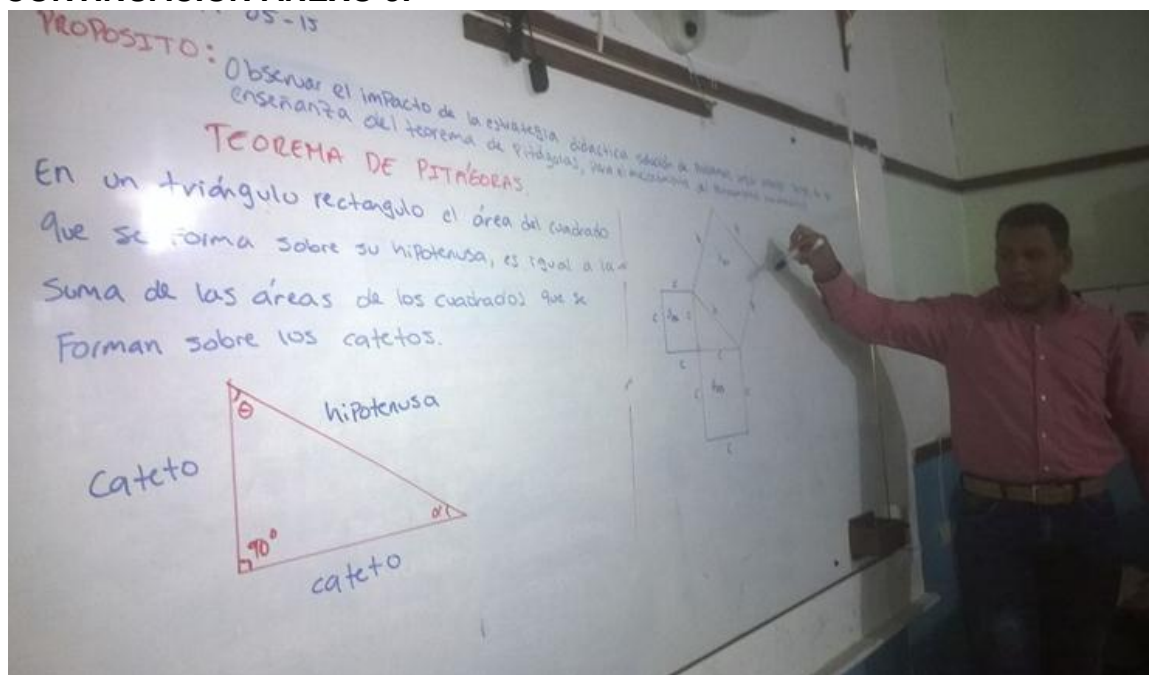 05-15
PROPOSITO:
Observar el impacto de la estrategia didáctica solución de
enseñanza del teorema de Pitágoras, para el
TEOREMA DE PITÁGORAS.
En un triángulo rectangulo el área del cuadrado
que se forma sobre su hipotenusa, es igual a la
suma de las áreas de los cuadrados que se
Forman sobre los catetos.
θ
hipotenusa
cateto
α
90°
cateto